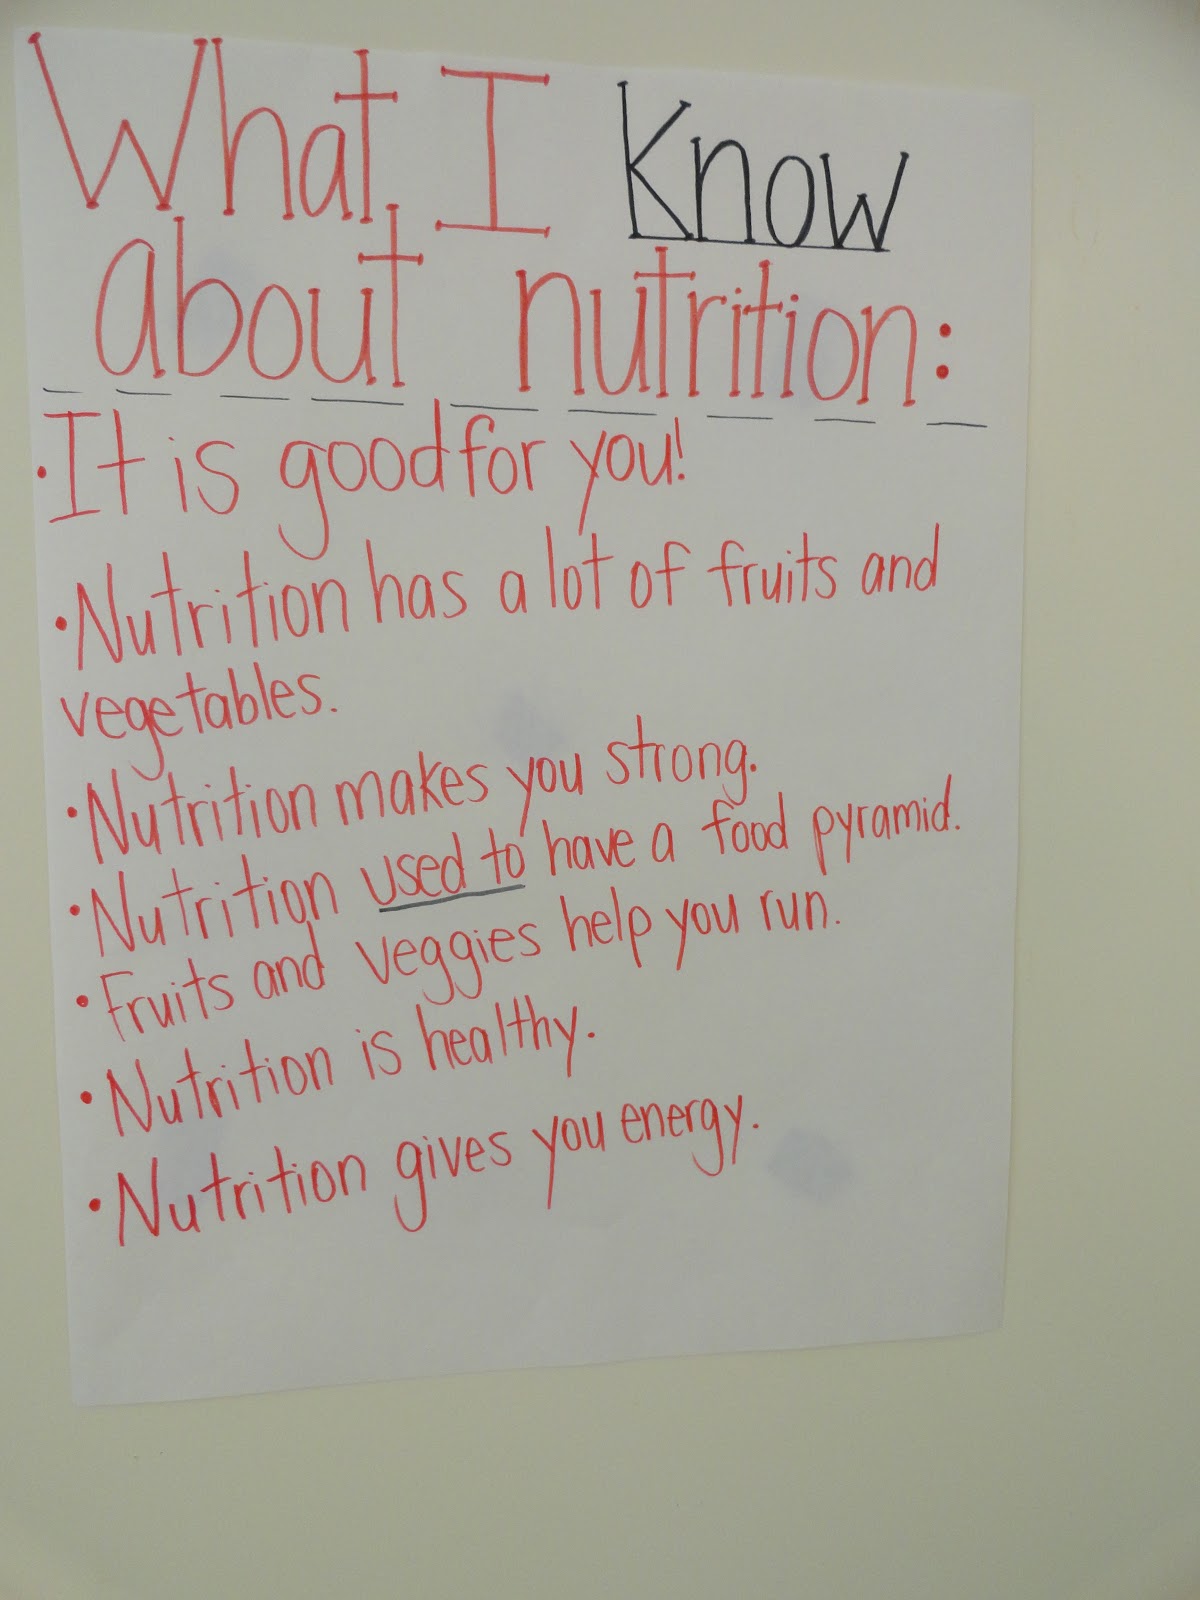 What I Know
about nutrition:
• It is good for you!
• Nutrition has a lot of fruits and
vegetables.
• Nutrition makes you strong.
• Nutrition used to have a food pyramid.
• Fruits and veggies help you run.
• Nutrition is healthy.
• Nutrition gives you energy.